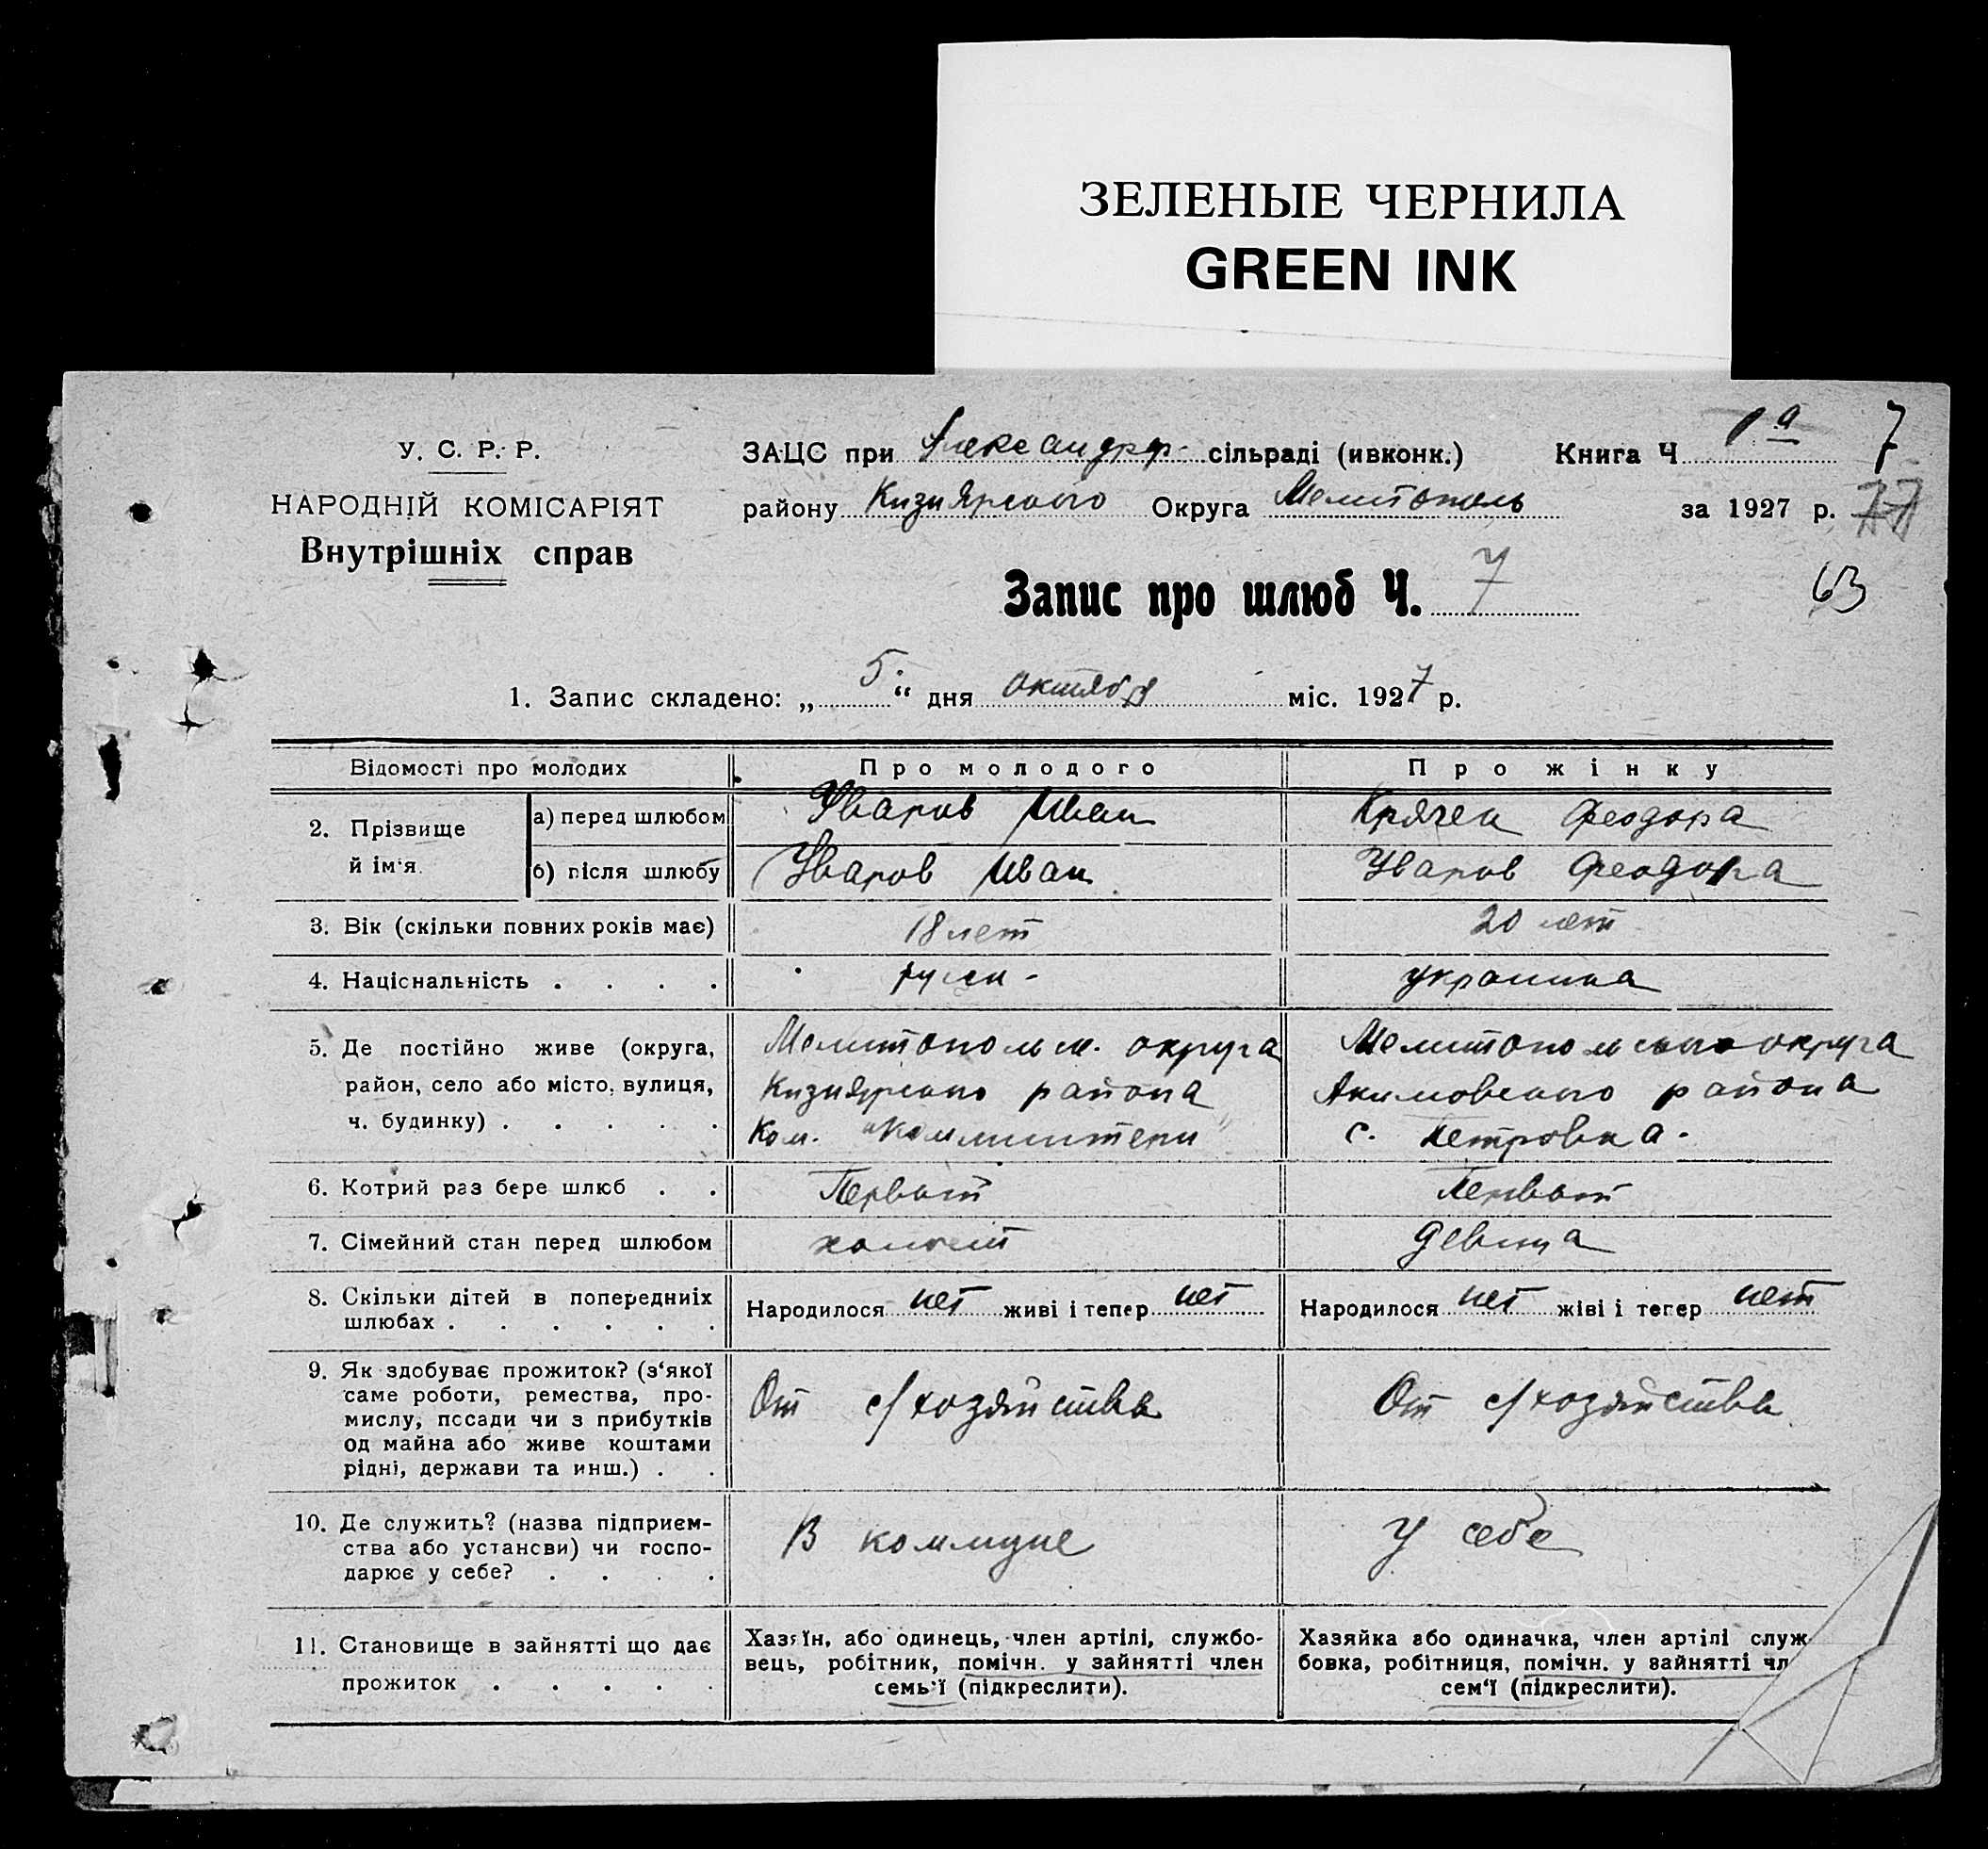 ЗЕЛЕНЫЕ ЧЕРНИЛА
GREEN INK
У. С. Р. Р.
НАРОДНІЙ КОМІСАРІЯТ
Внутрішніх справ
ЗАЦС при Александр. сільраді (ивконк.) Книга Ч 1а 7
району Кизиярского Округа Мелитополь за 1927 р. 77
Запис про шлюб Ч. 7
63
1. Запис складено: „ 5 “ дня октября міс. 1927 р.
Відомості про молодих Про молодого Про жінку
2. Прізвище й ім'я. а) перед шлюбом Уваров Иван Крячек Феодора
б) після шлюбу Уваров Иван Уваров Феодора
3. Вік (скільки повних років має) 18 лет 20 лет
4. Національність . . . . русск- украинка
5. Де постійно живе (округа,
район, село або місто, вулиця,
ч. будинку) . . . . .
Мелитопольск. округа
Кизиярского района
Ком. "Коминтерн"
Мелитопольского округа
Акимовского района
с. Петровка.
6. Котрий раз бере шлюб . . Первый Первый
7. Сімейний стан перед шлюбом холост девица
8. Скільки дітей в попередниіх
шлюбах . . . . . .
Народилося нет живі і тепер нет
Народилося нет жіві і тепер нет
9. Як здобуває прожиток? (з'якої
саме роботи, ремества, про-
мислу, посади чи з прибутків
од майна або живе коштами
рідні, держави та инш.) . .
От с/хозяйства
От с/хозяйства
10. Де служить? (назва підприєм-
ства або установи) чи госпо-
дарює у себе? . . . .
В коммуне
У себе
11. Становище в зайнятті що дає
прожиток . . . . .
Хазяїн, або одинець, член артілі, службо-
вець, робітник, помічн. у зайнятті член
семь'ї (підкреслити).
Хазяйка або одиначка, член артілі служ-
бовка, робітниця, помічн. у зайнятті чл
сем'ї (підкреслити).